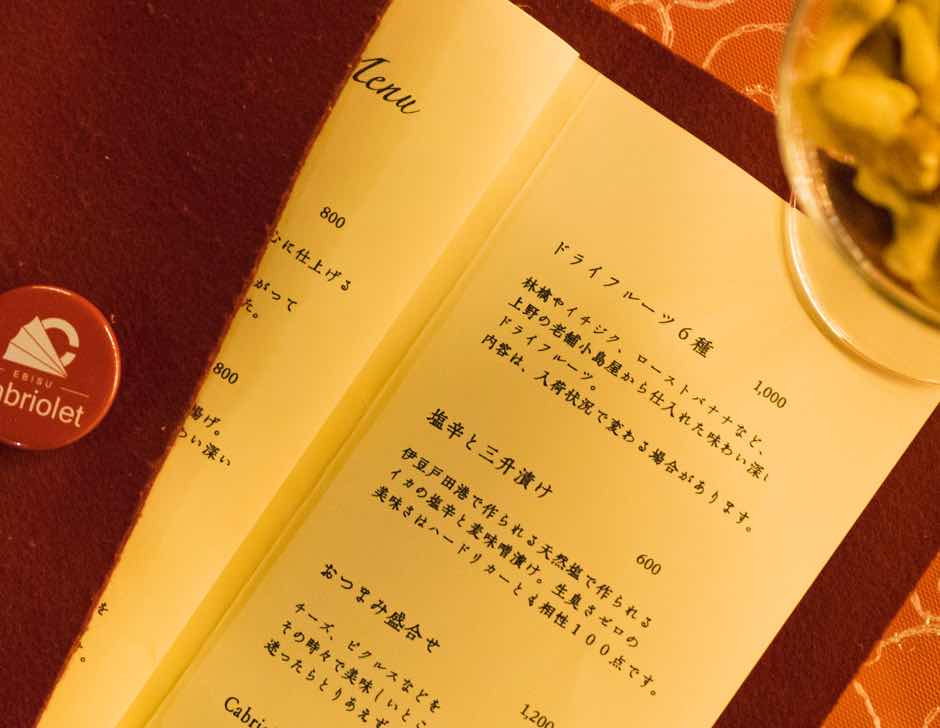 Menu
800
に仕上げる
がって
た。
800
揚げ。
い深い
を
。
EBISU
abriolet
ドライフルーツ6種
1,000
林檎やイチジク、ローストバナナなど、
上野の老舗小島屋から仕入れた味わい深い
ドライフルーツ。
内容は、入荷状況で変わる場合があります。
塩辛と三升漬け
600
伊豆戸田港で作られる天然塩で作られる
イカの塩辛と麦味噌漬け。生臭さゼロの
美味さはハードリカーとも相性100点です。
おつまみ盛合せ
1,200
チーズ、ピクルスなどを
その時々で美味しいとこ
迷ったらとりあえず
Cabrio